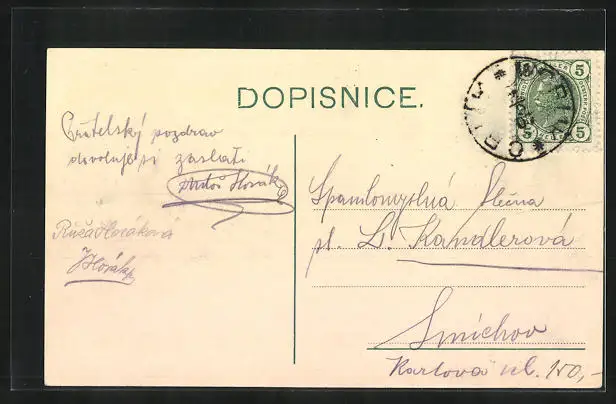 DOPISNICE.
Přátelský pozdrav
dovoluje si zaslati
Antoš Horák
Růža Horáková
JHorák
Spanilomyslná Slečna
sl. L. Kandlerová
Smíchov
Karlova ul. 150,-
5 5
5 5